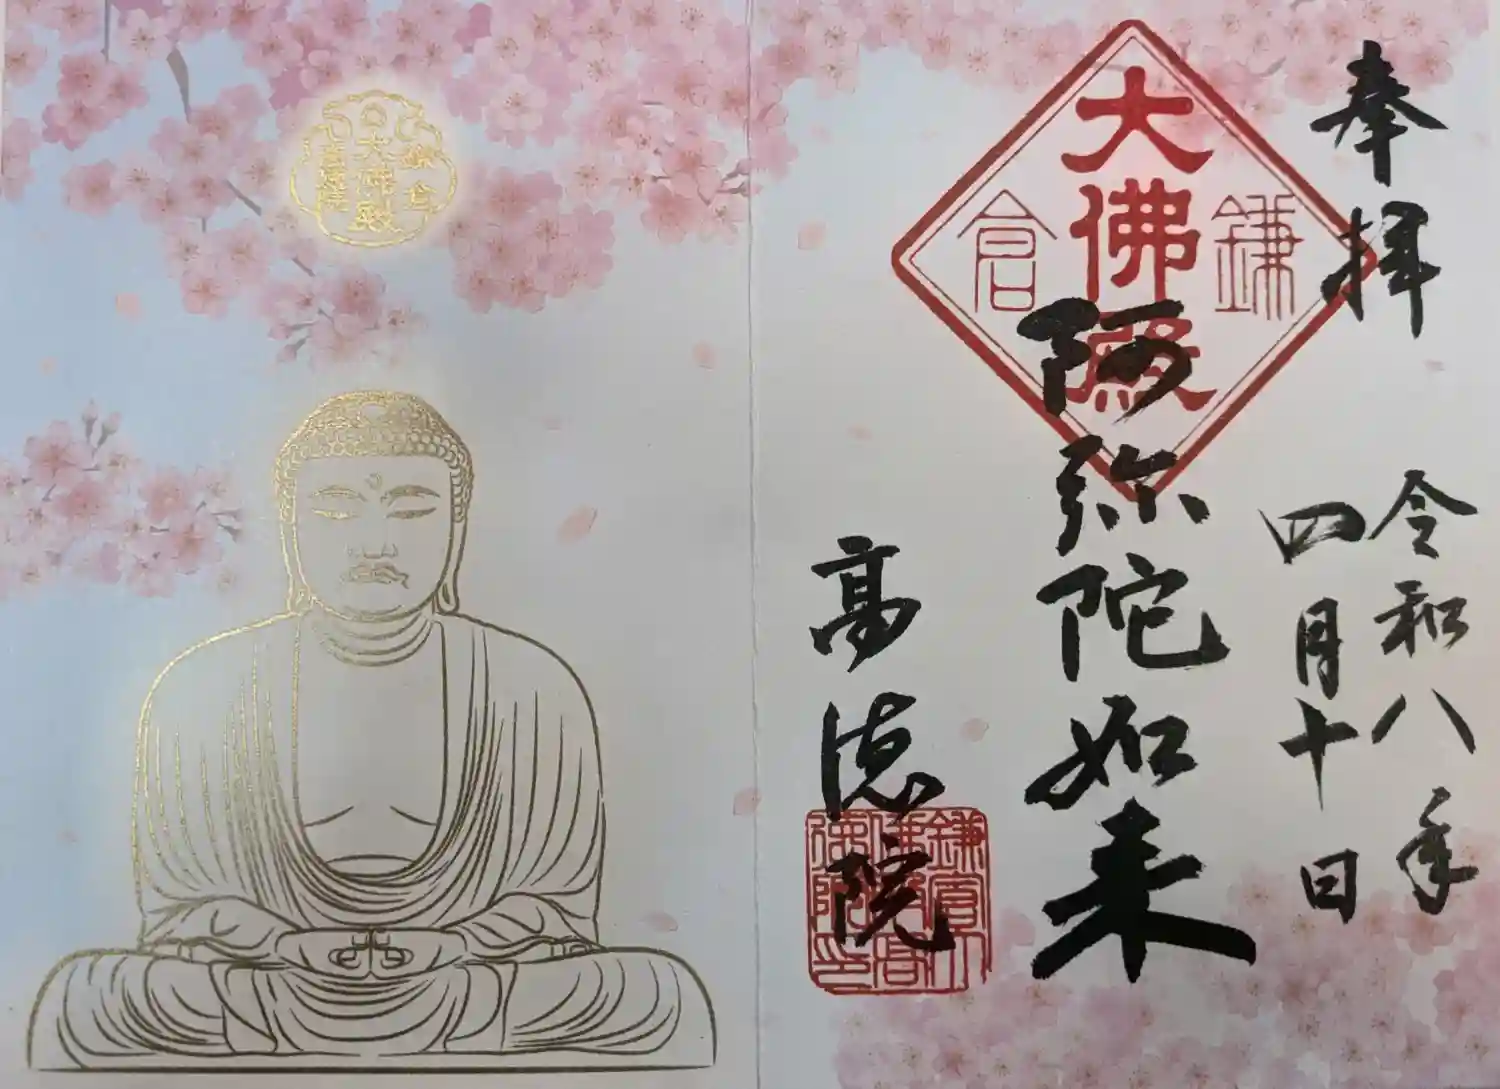 奉拝
令和八年
四月十日
鎌倉
大佛殿
阿弥陀如来
高徳院
鎌倉
大佛殿
高徳院